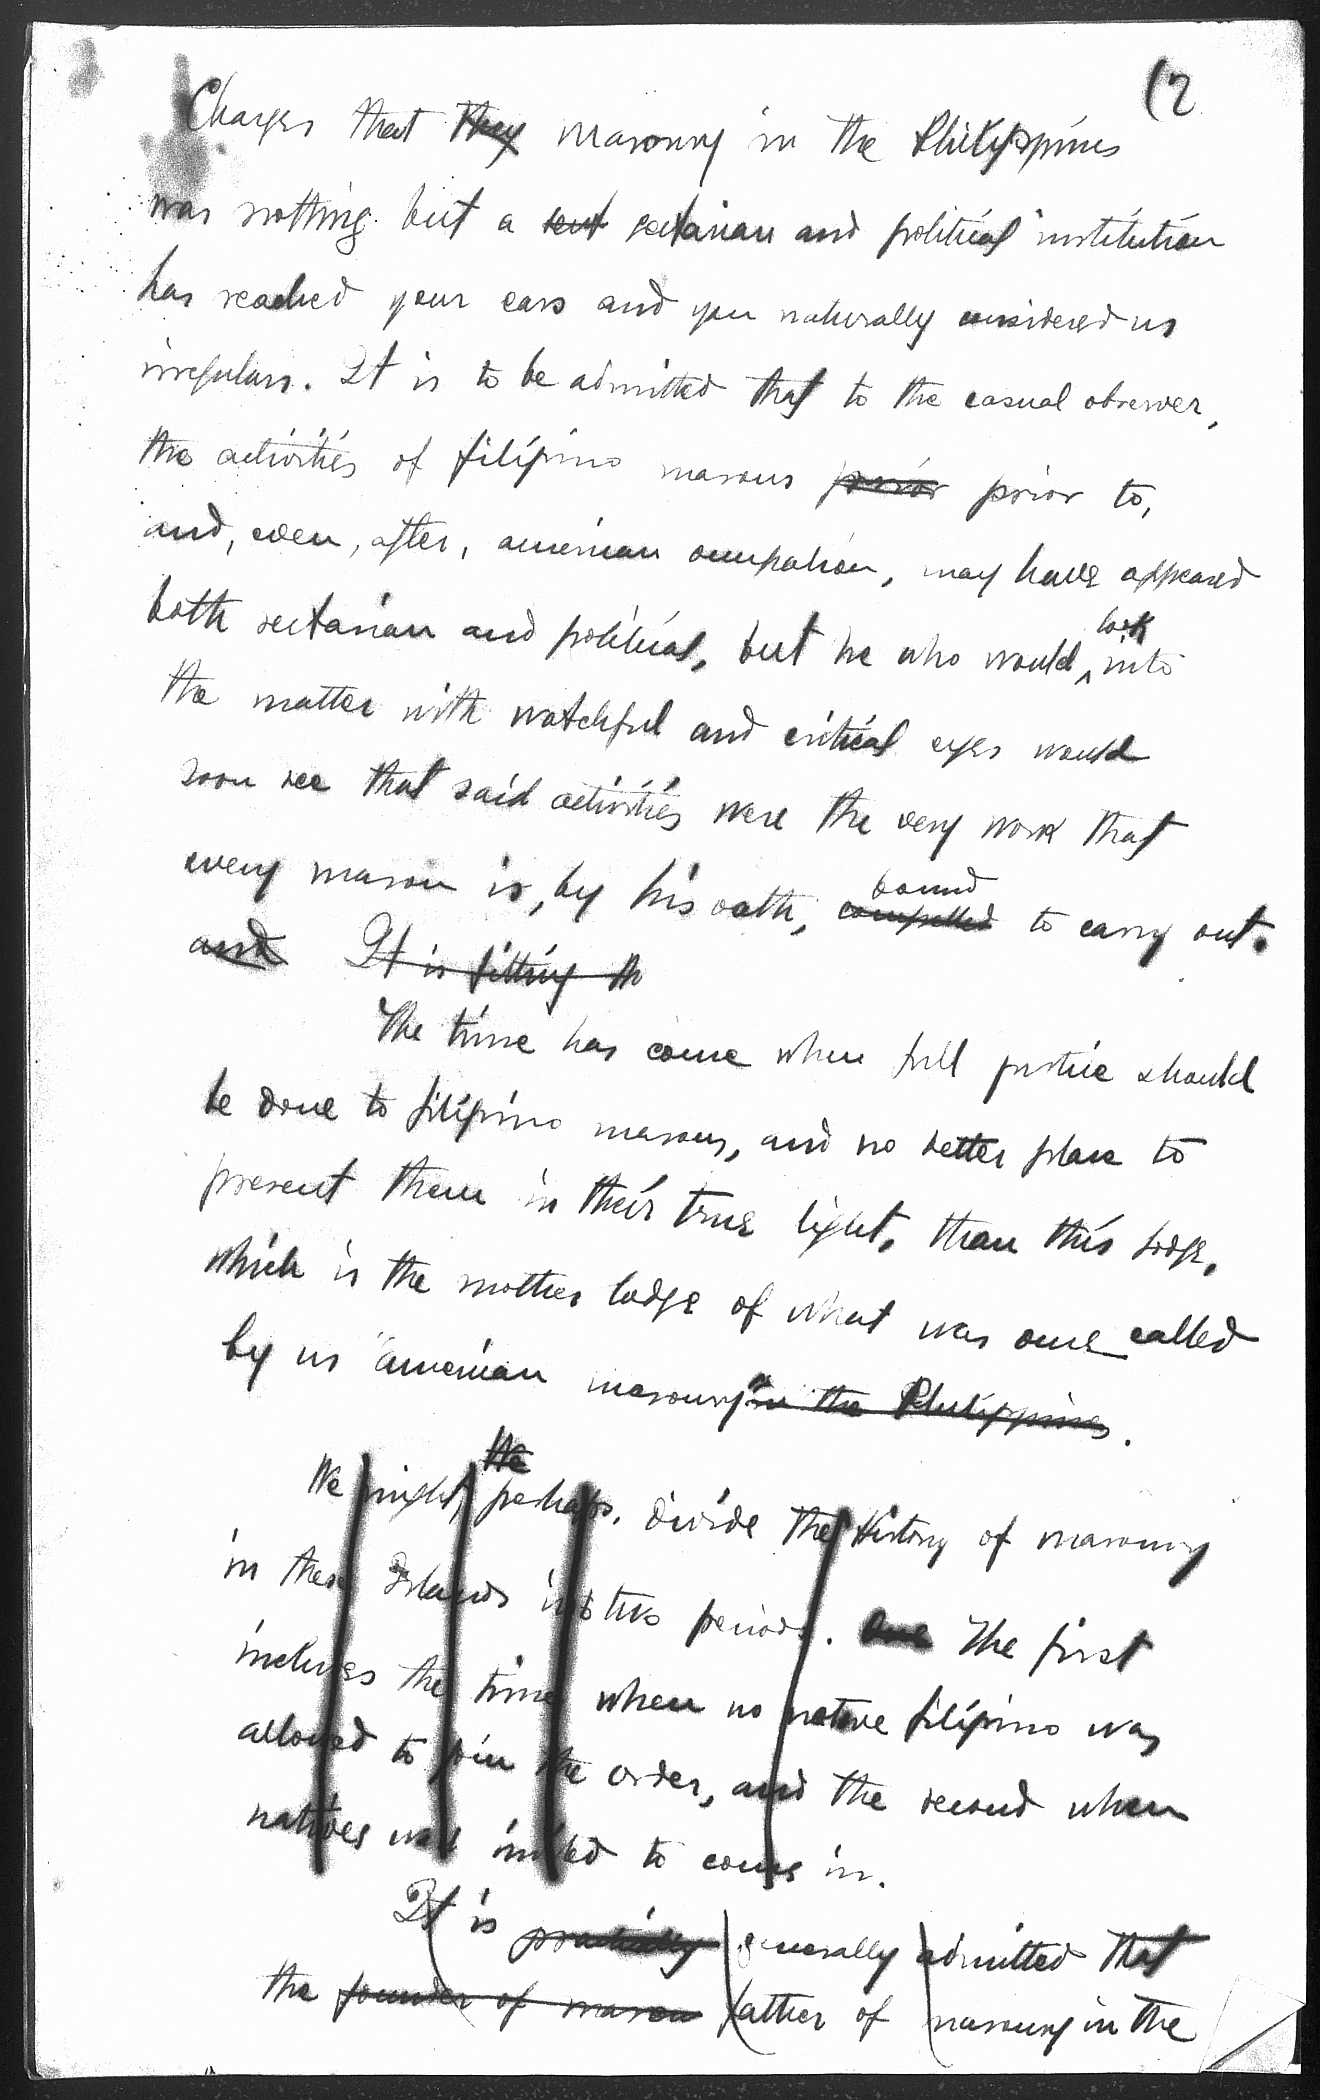 (2
Charges that they masonry in the Philippines
was nothing but a sect sectarian and political institution
has reached your ears and you naturally considered us
irregulars. It is to be admitted that to the casual observer,
the activities of filipino masons prior prior to,
and, even, after, american occupation, may have appeared
look
both sectarian and political, but he who would, ^ into
the matter with watchful and critical eyes would
soon see that said activities were the very work that
bound
every mason is, by his oath, compelled to carry out.
and It is fitting th
The time has come when full justice should
be done to filipino masons, and no better place to
present them in their true light, than this lodge,
which is the mother lodge of what was once called
by us "american masonry" in the Philippines.
We
We might, perhaps, divide the history of masonry
in these Islands into two periods. One The first
includes the time when no native filipino was
allowed to join the order, and the second when
natives were invited to come in.
It is practically generally admitted that
the founder of mason father of masonry in the